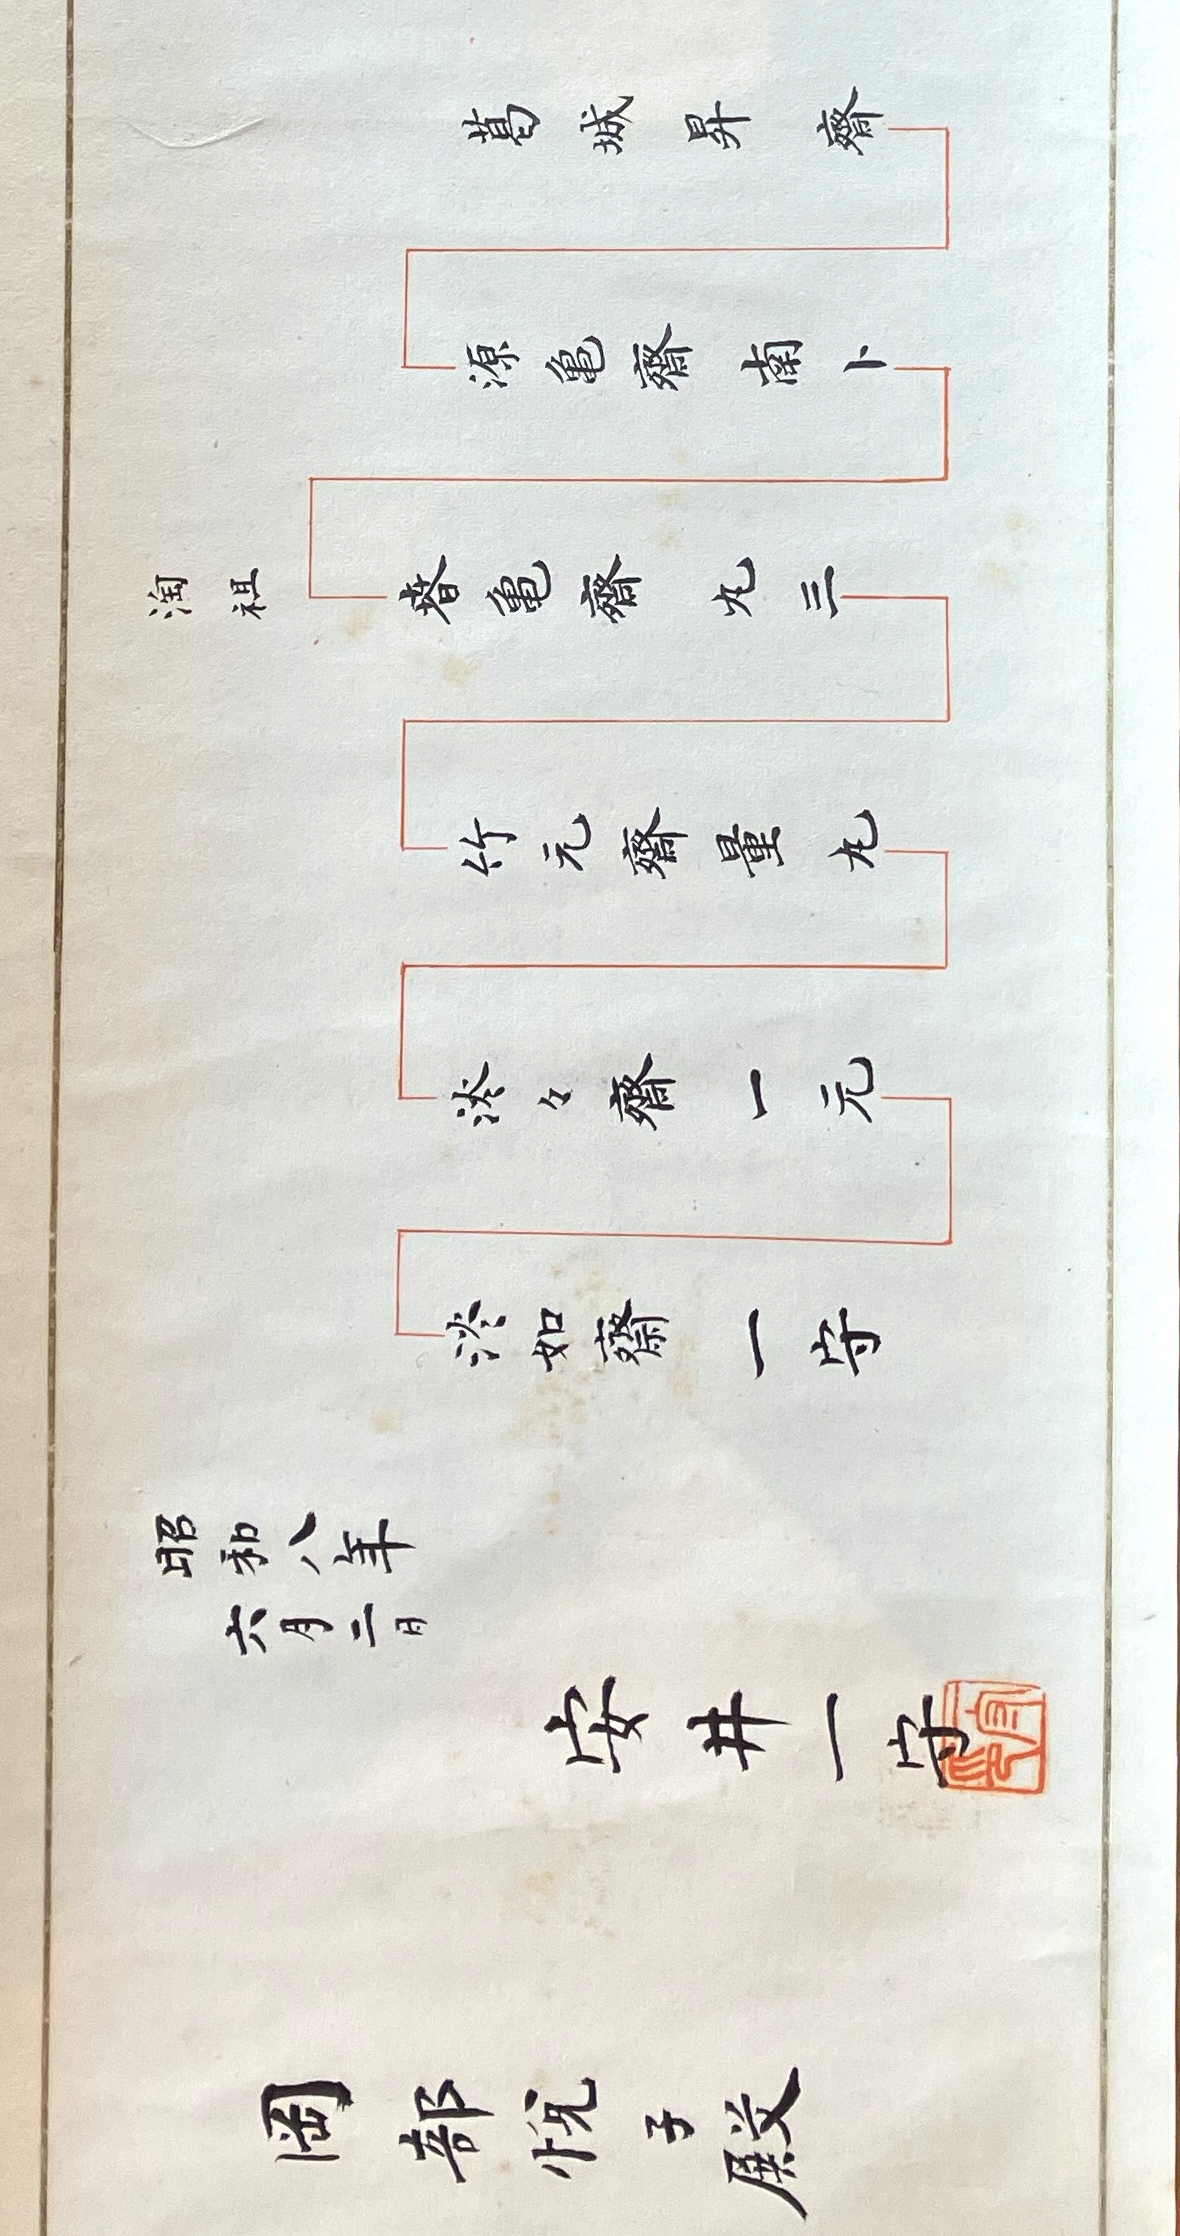 葛城昇齋
源亀齋南卜
淘祖
春亀齋九三
竹元齋量九
淡々齋一元
淡如齋一守
昭和八年
六月二日
安井一守
岡部悦子殿